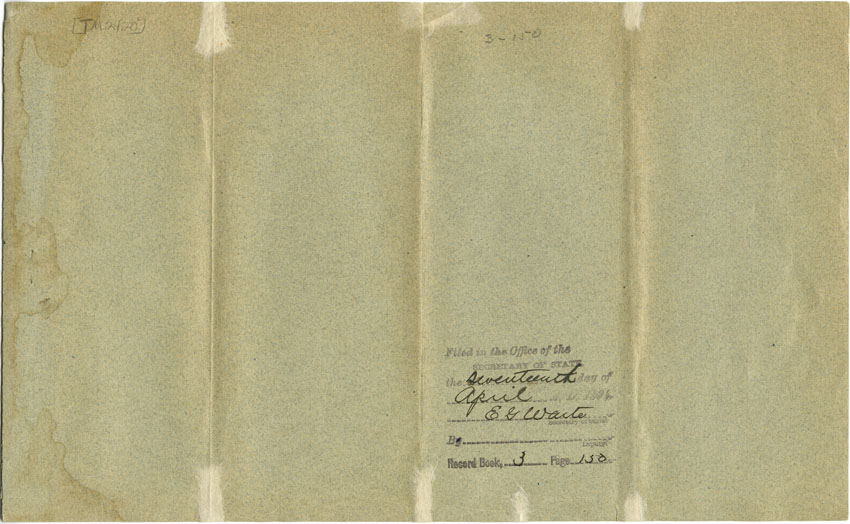 [TM2420]
3-150
Filed in the Office of the
SECRETARY OF STATE
the seventeenth day of
April A. D. 1894
E G Waite
Secretary of State
By
Deputy
Record Book, 3 Page 150